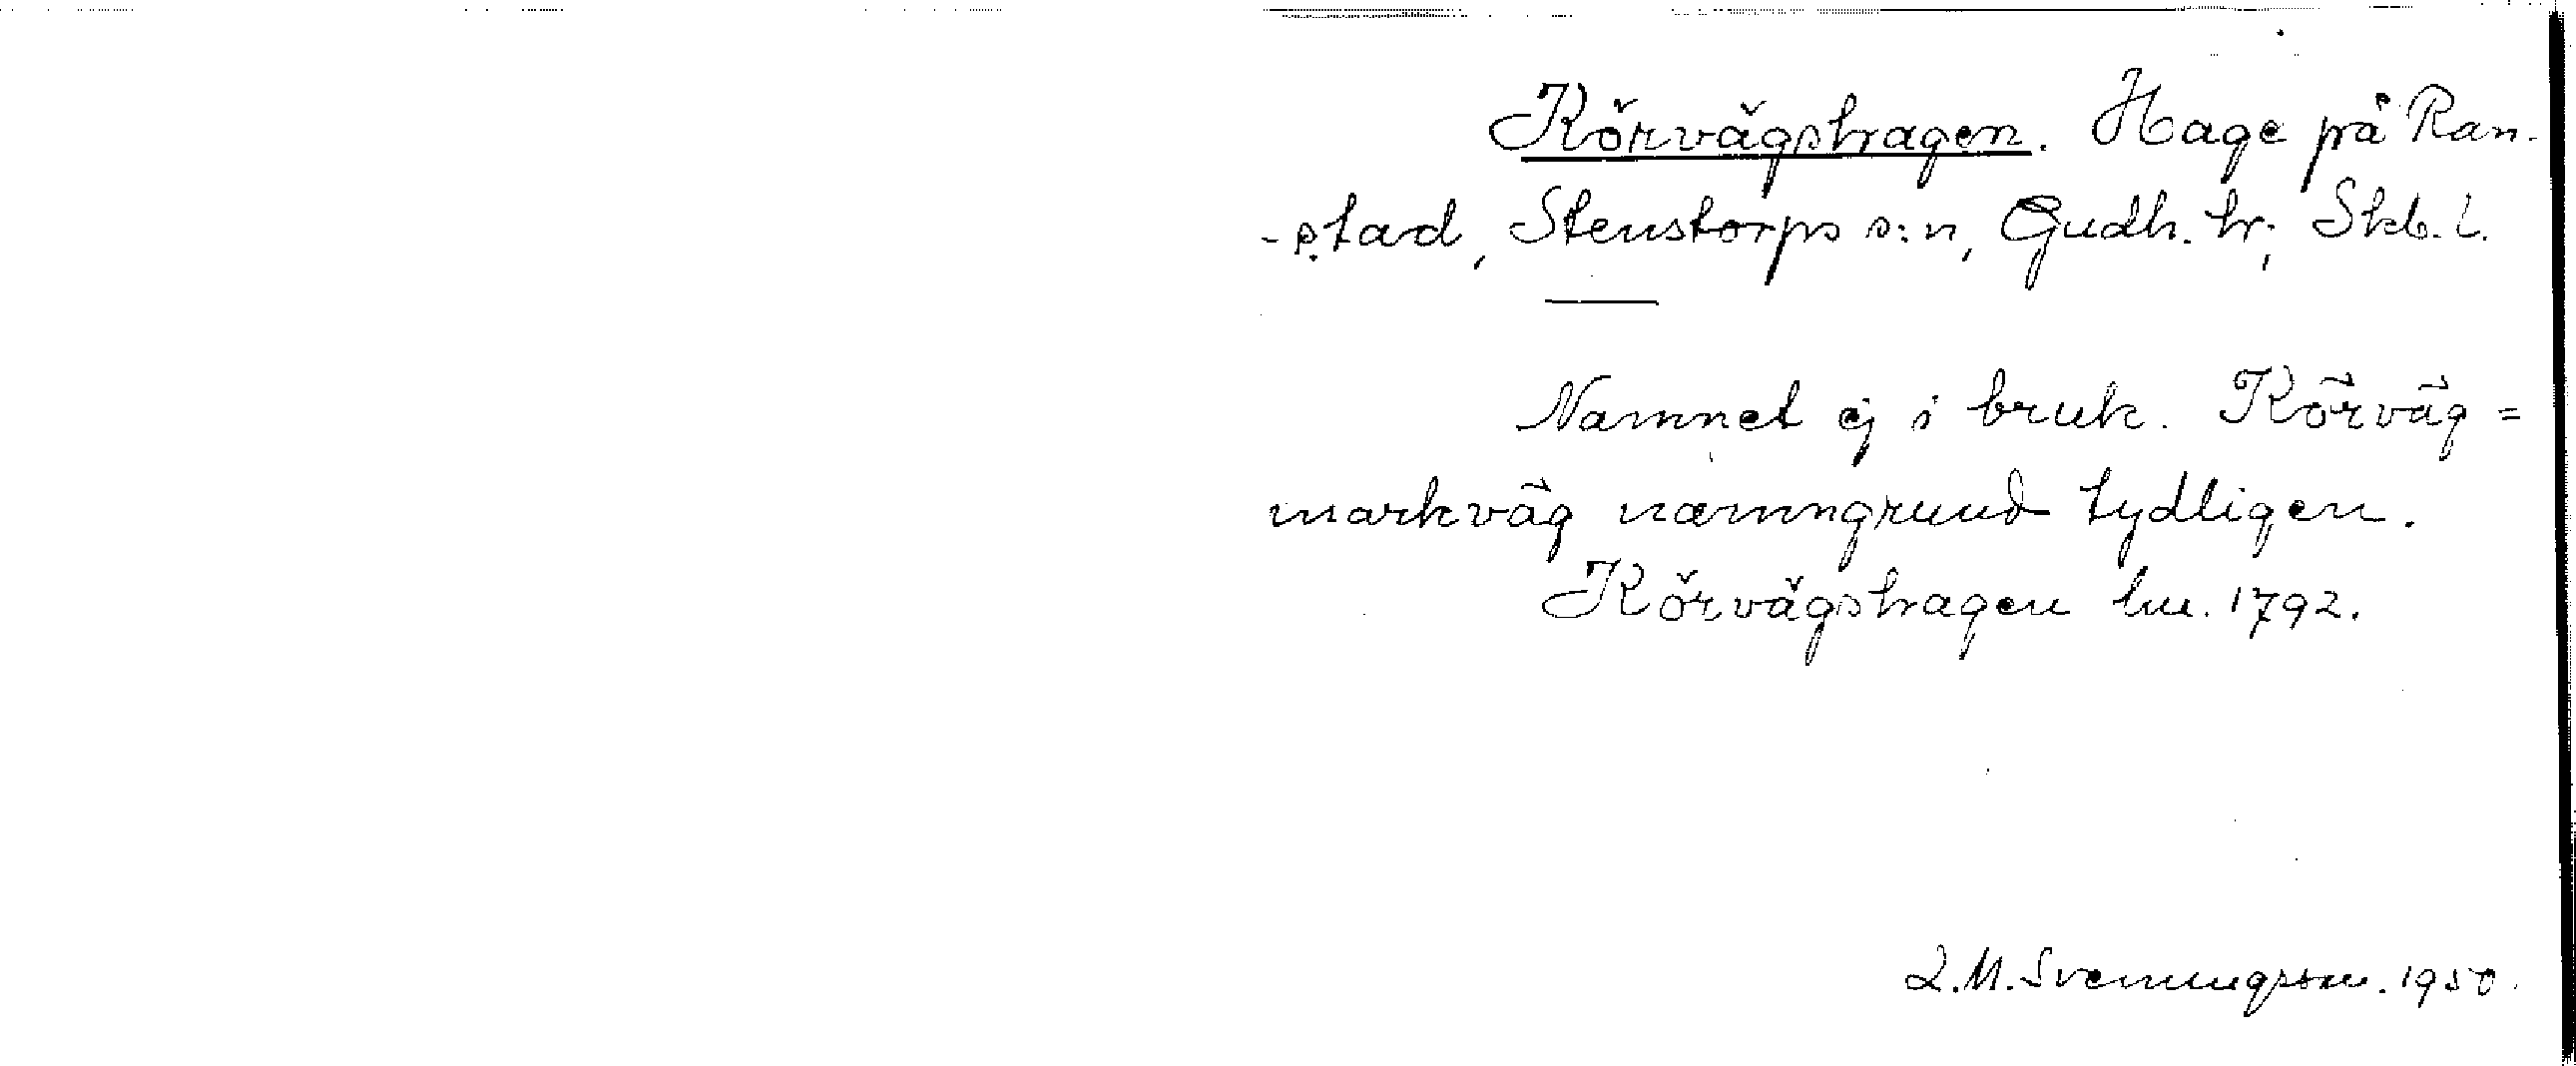 Körvägshagen. Hage på Ran-
-stad, Stenstorps s:n, Gudh. hr; Skb. l.
Namnet ej i bruk. Körväg =
markväg namngrund tydligen.
Körvägshagen lm. 1792.
L.M. Svenningsson. 1950.